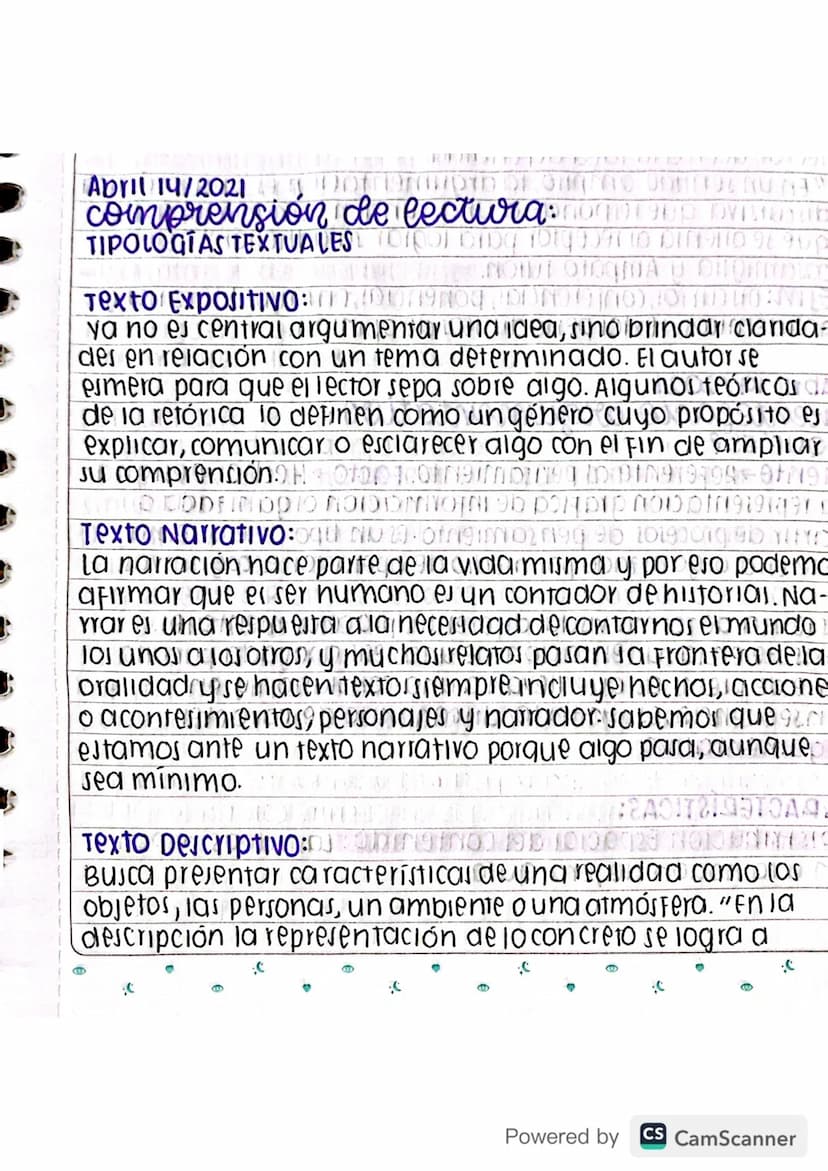 Abril 14/2021
comprensión de lectura:
TIPOLOGÍAS TEXTUALES
Texto Expositivo:
ya no es central argumentar una idea, sino brindar clarida-
des en relación con un tema determinado. El autor se
esmera para que el lector sepa sobre algo. Algunos teóricos
de la retórica lo definen como un género cuyo propósito es
explicar, comunicar o esclarecer algo con el fin de ampliar
su comprensión.
Texto Narrativo:
La narración hace parte de la vida misma y por eso podemo
afirmar que el ser humano es un contador de historias. Na-
rrar es una respuesta a la necesidad de contarnos el mundo
los unos a los otros, y muchos relatos pasan la frontera de la
oralidad y se hacen textos siempre incluye hechos, accione
o acontesimientos, personajes y narrador. sabemos que
estamos ante un texto narrativo porque algo pasa, aunque
sea mínimo.
Texto Descriptivo:
Busca presentar características de una realidad como los
objetos, las personas, un ambiente o una atmósfera. "En la
descripción la representación de lo concreto se logra a
Powered by CS CamScanner